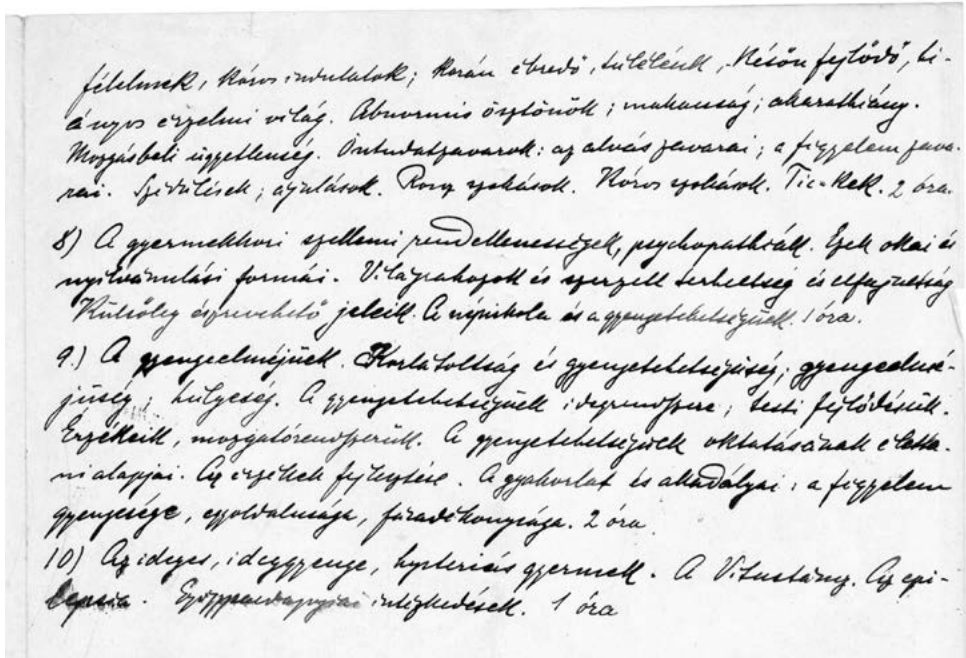 félelmek, kóros indulatok; korán ébredő, túlélénk, későn fejlődő, hi-
ányos érzelmi világ. Abnormis ösztönök; makacsság; akarathiány.
Mozgásbeli ügyetlenség. Öntudatzavarok: az alvás zavarai; a figyelem zava-
rai. Szédülések; ájulások. Rossz szokások. Kóros szokások. Tic-kek. 2 óra.
8) A gyermekkori szellemi rendellenességek, psychopathiák. Ezek okai és
nyilvánulási formái. Világrahozott és szerzett terheltség és elfajzottság
Külsőleg észrevehető jeleik. A népiskola és a gyengetehetségűek. 1 óra.
9.) A gyengeelméjűek. Korlátoltság és gyengetehetségűség; gyengeelmé-
jűség; hülyeség. A gyengetehetségűek idegrendszere; testi fejlődésük.
Érzékeik, mozgatórendszerük. A gyengetehetségűek oktatásának életta-
ni alapjai. Az érzékek fejlesztése. A gyakorlat és akadályai: a figyelem
gyengesége, egyoldalusága, fáradékonysága. 2 óra
10) Az ideges, ideggyenge, hysteriás gyermek. A Vitustánc. Az epi-
lepsia. intézkedések. 1 óra